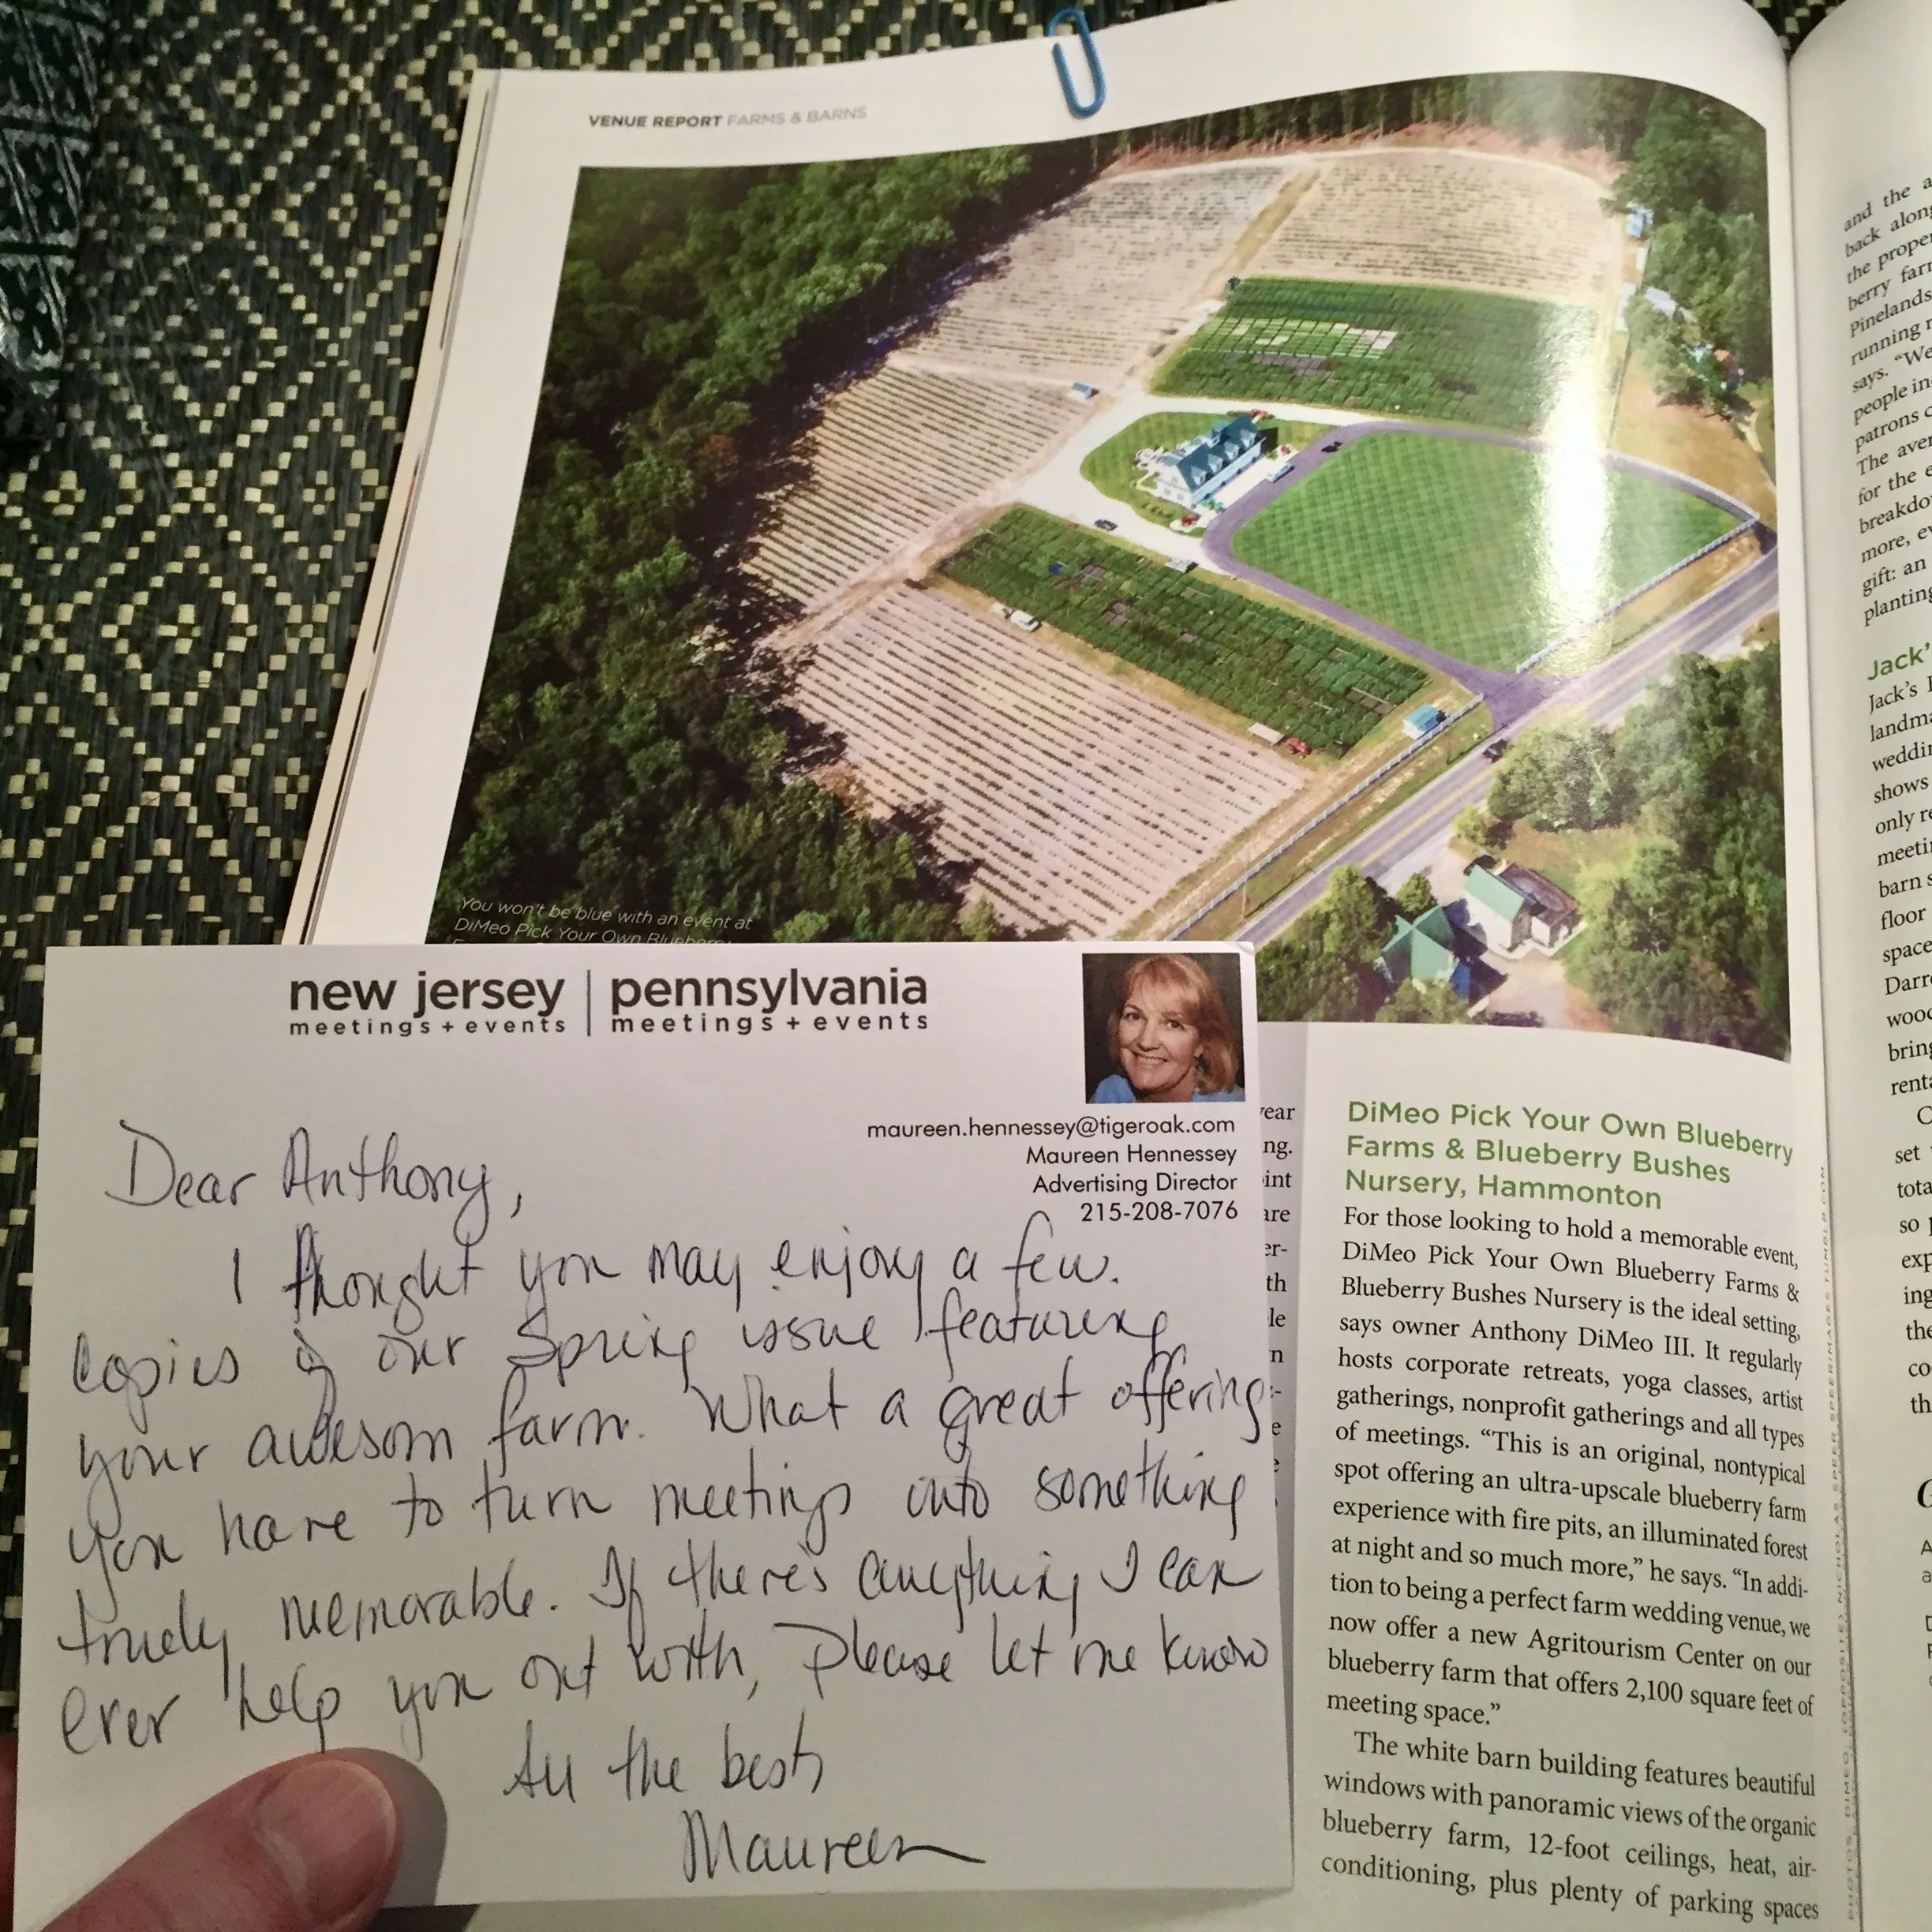 VENUE REPORT FARMS & BARNS
You won't be blue with an event at
DiMeo Pick Your Own
new jersey | pennsylvania
meetings + events | meetings + events
maureen.hennessey@tigeroak.com
Maureen Hennessey
Advertising Director
215-208-7076
Dear Anthony,
I thought you may enjoy a few
copies of our Spring issue featuring
your awesom farm. What a great offering
you have to turn meetings into something
truely memorable. If there's anything I can
ever help you out with, please let me know
All the best,
Maureen
year
ng.
int
are
er-
th
le
n
DiMeo Pick Your Own Blueberry
Farms & Blueberry Bushes
Nursery, Hammonton
For those looking to hold a memorable event,
DiMeo Pick Your Own Blueberry Farms &
Blueberry Bushes Nursery is the ideal setting,
says owner Anthony DiMeo III. It regularly
hosts corporate retreats, yoga classes, artist
gatherings, nonprofit gatherings and all types
of meetings. “This is an original, nontypical
spot offering an ultra-upscale blueberry farm
experience with fire pits, an illuminated forest
at night and so much more,” he says. “In addi-
tion to being a perfect farm wedding venue, we
now offer a new Agritourism Center on our
blueberry farm that offers 2,100 square feet of
meeting space.”
The white barn building features beautiful
windows with panoramic views of the organic
blueberry farm, 12-foot ceilings, heat, air-
conditioning, plus plenty of parking spaces
and the a
back along
the proper
berry farm
Pinelands
running
says. “We
people in
patrons
The aver
for the e
breakdo
more, ev
gift: an
planting
Jack'
Jack's
landma
weddin
shows
only re
meeti
barn s
floor
space
Darr
wood
bring
renta
C
set
tota
so
exp
ing
the
co
th